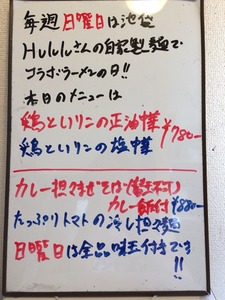 毎週日曜日は池袋
Hululuさんの自家製麺で
コラボラーメンの日!!
本日のメニューは
鶏といりこの正油様
鶏といりこの塩様 ¥780-
カレー担々まぜそば
カレー飯付 ¥880-
たっぷりトマトの冷し担々麺
日曜日は全品味玉付きです!!